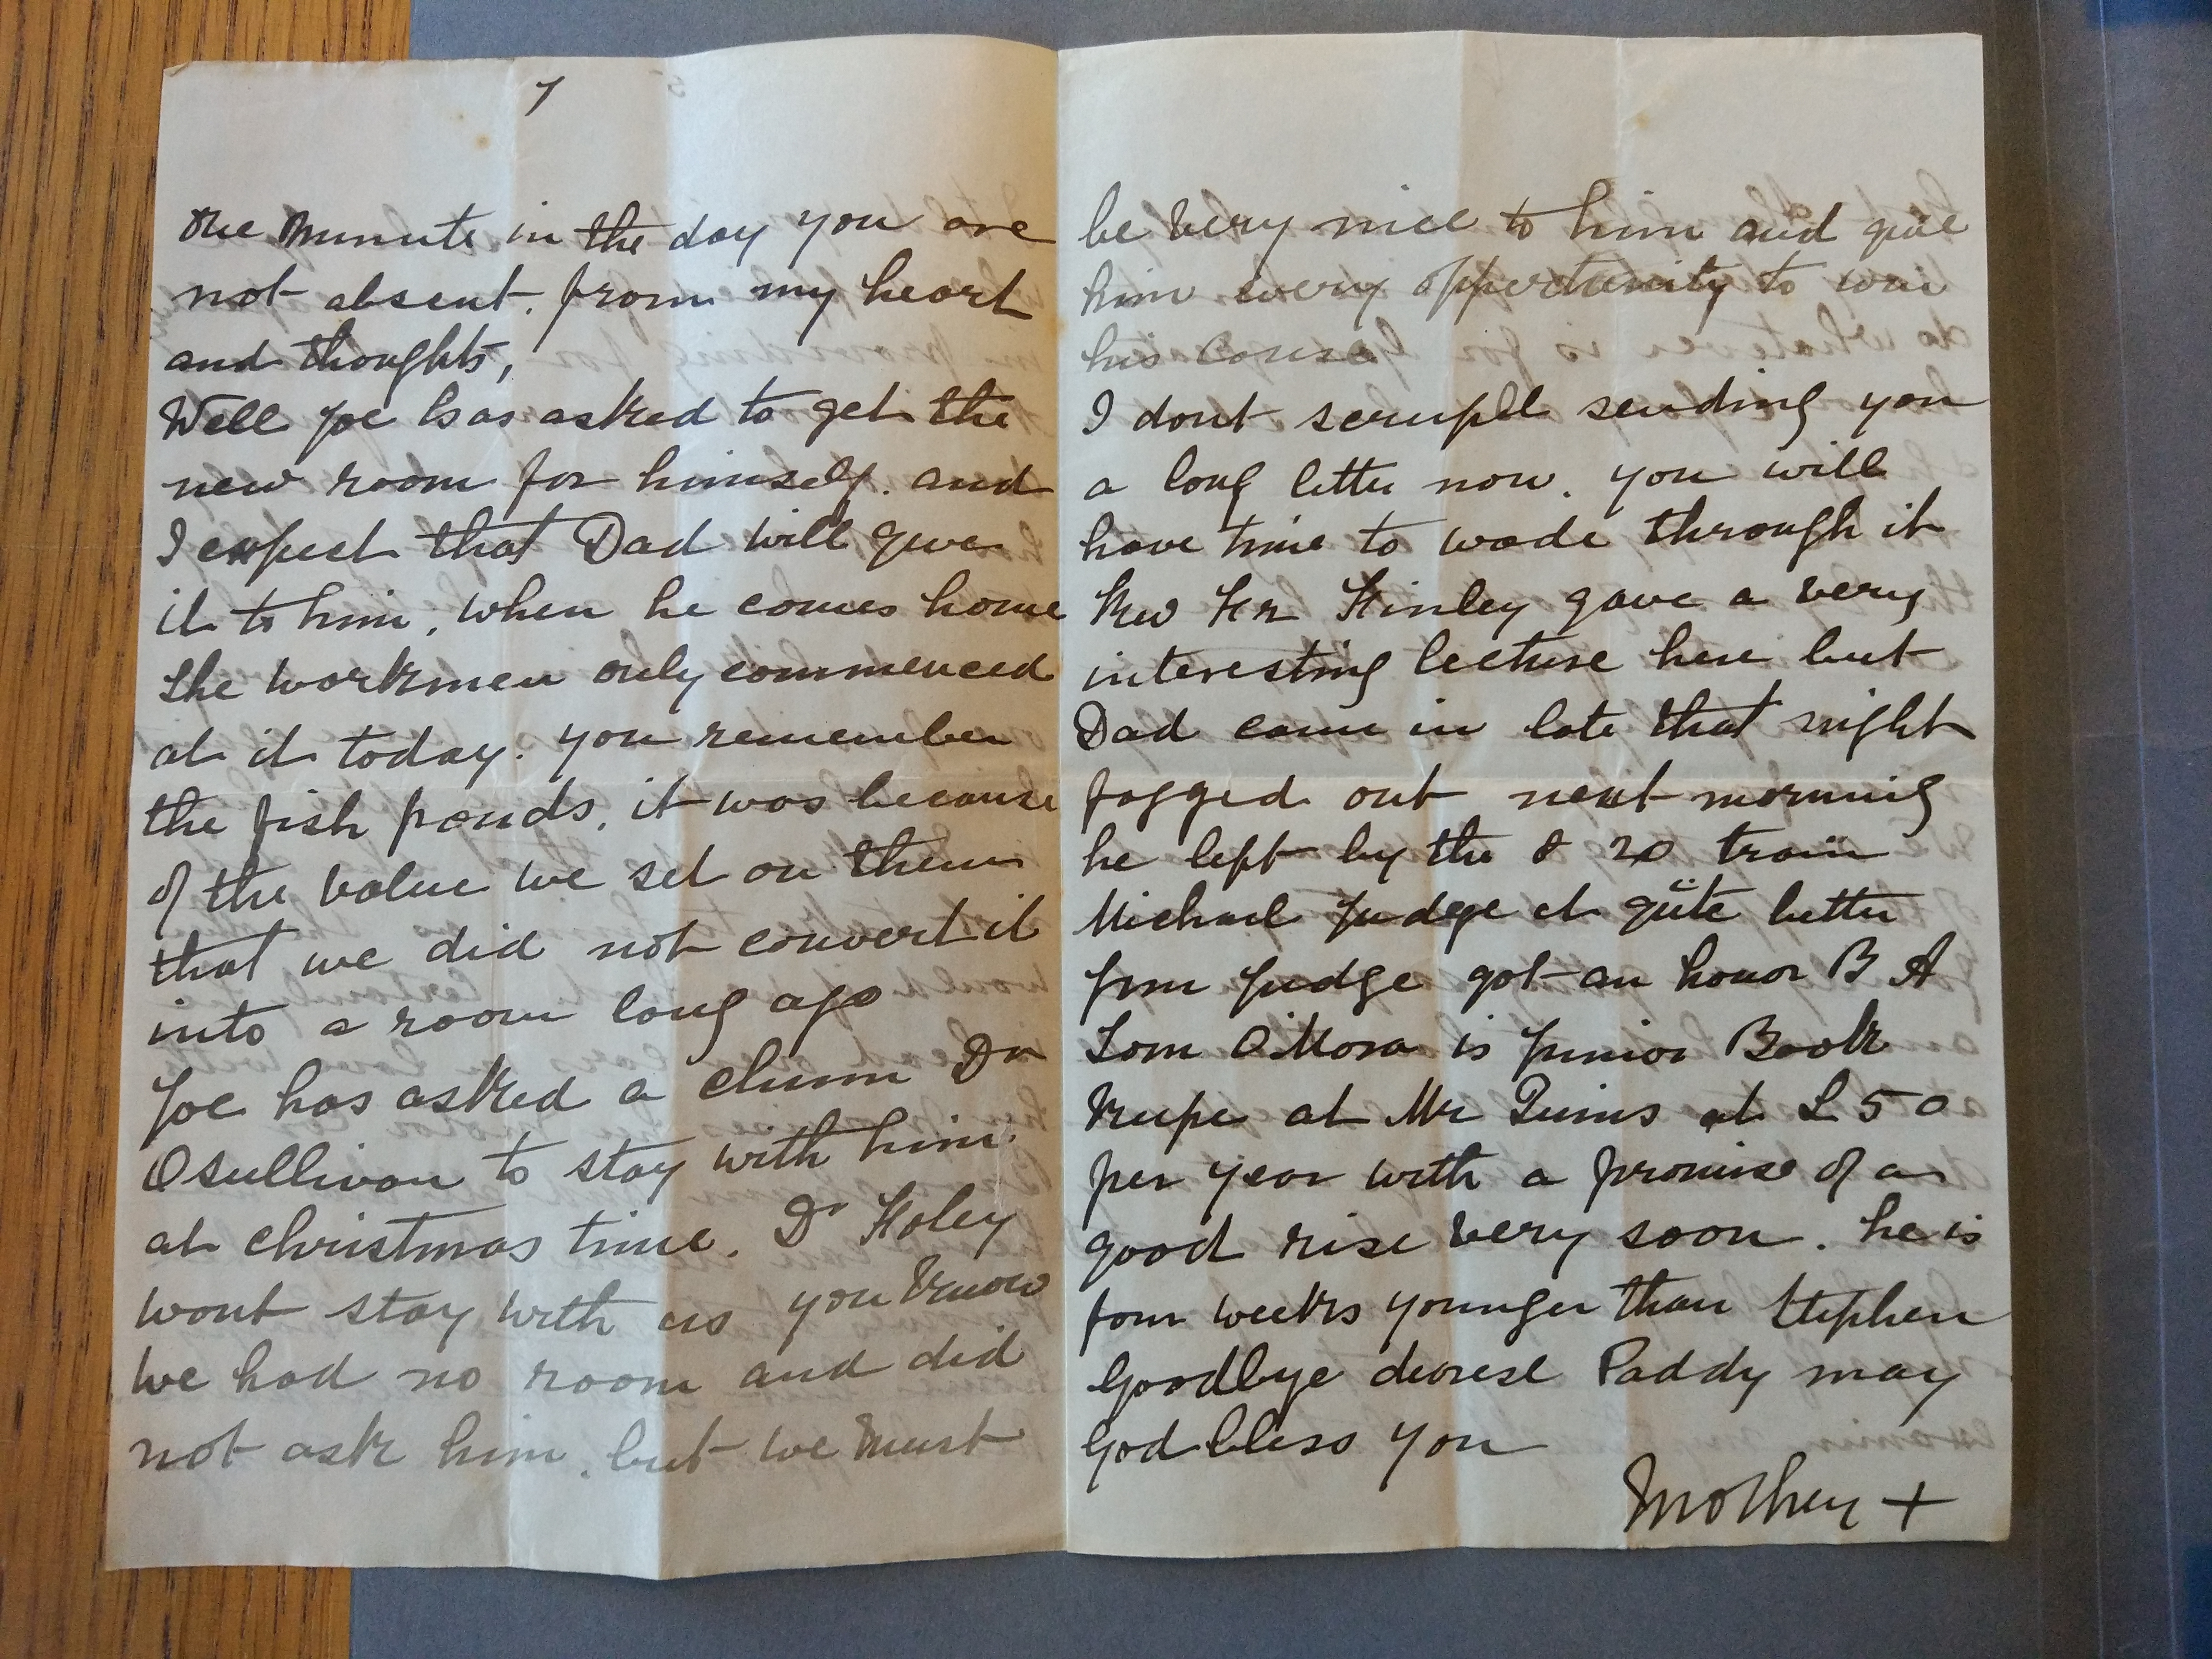 7
One minute in the day you are
not absent. from my heart
and thoughts,
Well Joe has asked to get the
new room for himself. and
I expect that Dad will give
it to him, when he comes home
The workmen only commenced
at it today. you remember
the fish ponds, it was because
of the value we set on them
that we did not convert it
into a room long ago
Joe has asked a chum Dr
OSullivan to stay with him
at christmas time. Dr Foley
wont stay with us you know
we had no room and did
not ask him. but we must
be very nice to him and give
him every oppertunity to win
his
I dont scruple sending you
a long letter now. you will
have time to wade through it
Rev Fr Finley gave a very
interesting lecture here but
Dad came in late that night
fagged out next morning
he left by the 8 20 train
Michael Judge is quite better
Jim Judge got an honor B A
Tom O'Mora is junior Book
Keeper at Mr Quins at £50
per year with a promise of a
good rise very soon. he is
four weeks younger than Stephen
Goodbye dearest Paddy may
God bless you
Mother +